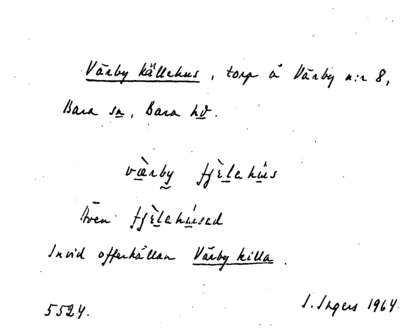 Värby källehus, torp å Värby n:r 8,
Bara sn, Bara hd.
værby fjèlahús
Även fjèlahúsad
Invid offerkällan Värby killa.
5524. I. Ingers 1964.